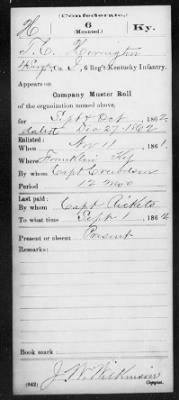 (Confederate.)
H 6 Ky.
(Mounted.)
Herrington
Co. 6 Reg't Kentucky Infantry.
Appears on
Company Muster Roll
of the organization named above,
for Sept & Oct, 1862.
dated Dec 27, 1862
Enlisted:
When Nov 11, 1861.
Where Franklin Ky
By whom Capt
Period 12 mos
Last paid:
By whom Capt Ricketts
To what time Sept 1, 186
Present or absent Present
Remarks:
Book mark:
J. W. Wilkinson
(642) Copyist.